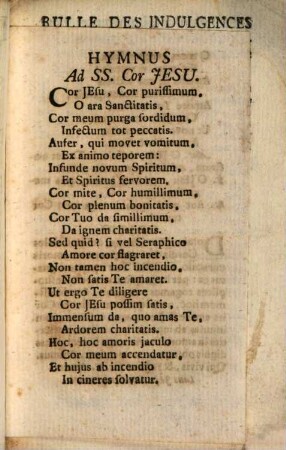 BULLE DES INDULGENCES
HYMNUS
Ad SS. Cor JESU.
Cor JEsu, Cor purissimum,
O ara Sanctitatis,
Cor meum purga sordidum,
Infectum tot peccatis.
Aufer, qui movet vomitum,
Ex animo teporem:
Infunde novum Spiritum,
Et Spiritus fervorem.
Cor mite, Cor humillimum,
Cor plenum bonitatis,
Cor Tuo da simillimum,
Da ignem charitatis.
Sed quid? si vel Seraphico
Amore cor flagraret,
Non tamen hoc incendio,
Non satis Te amaret.
Ut ergo Te diligere
Cor JEsu possim satis,
Immensum da, quo amas Te,
Ardorem charitatis.
Hoc, hoc amoris jaculo
Cor meum accendatur,
Et hujus ab incendio
In cineres solvatur.